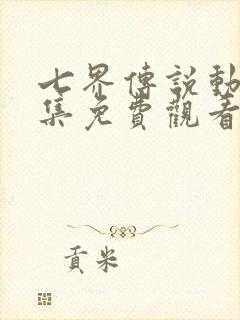 七界傳說動
集免費觀看
貢米